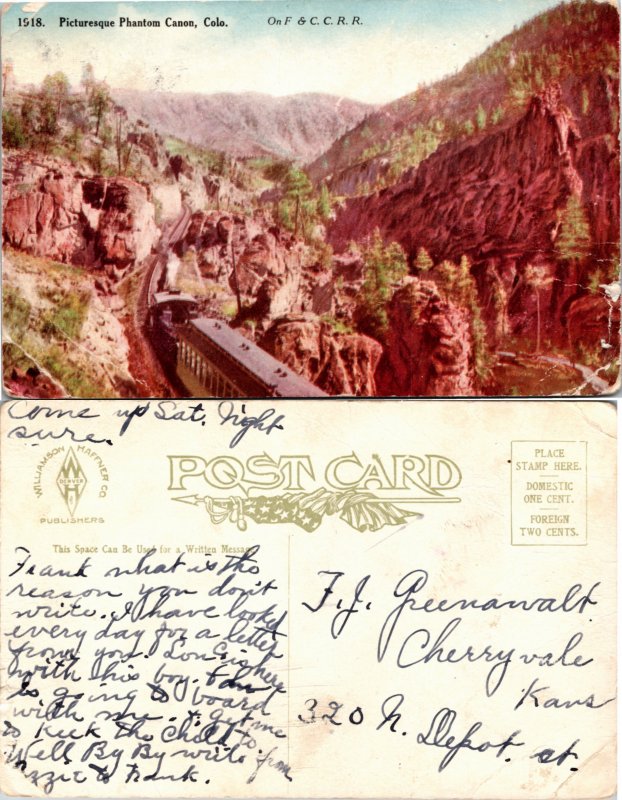 1918. Picturesque Phantom Canon, Colo.
On F & C. C. R. R.
Come up Sat. Night
sure.
WILLIAMSON HAFFNER CO
DENVER
PUBLISHERS
POST CARD
PLACE
STAMP HERE.
DOMESTIC
ONE CENT.
FOREIGN
TWO CENTS.
This Space Can Be Used for a Written Message
Frank what is the
reason you don't
write. I have looked
every day for a letter
from you. is here
with this boy.
is going to board
with me. to get me
to Keek the Child
Well By By write from
to Frank.
F. J. Greenawalt
Cherryvale
Kans
320 N. Depot. st.